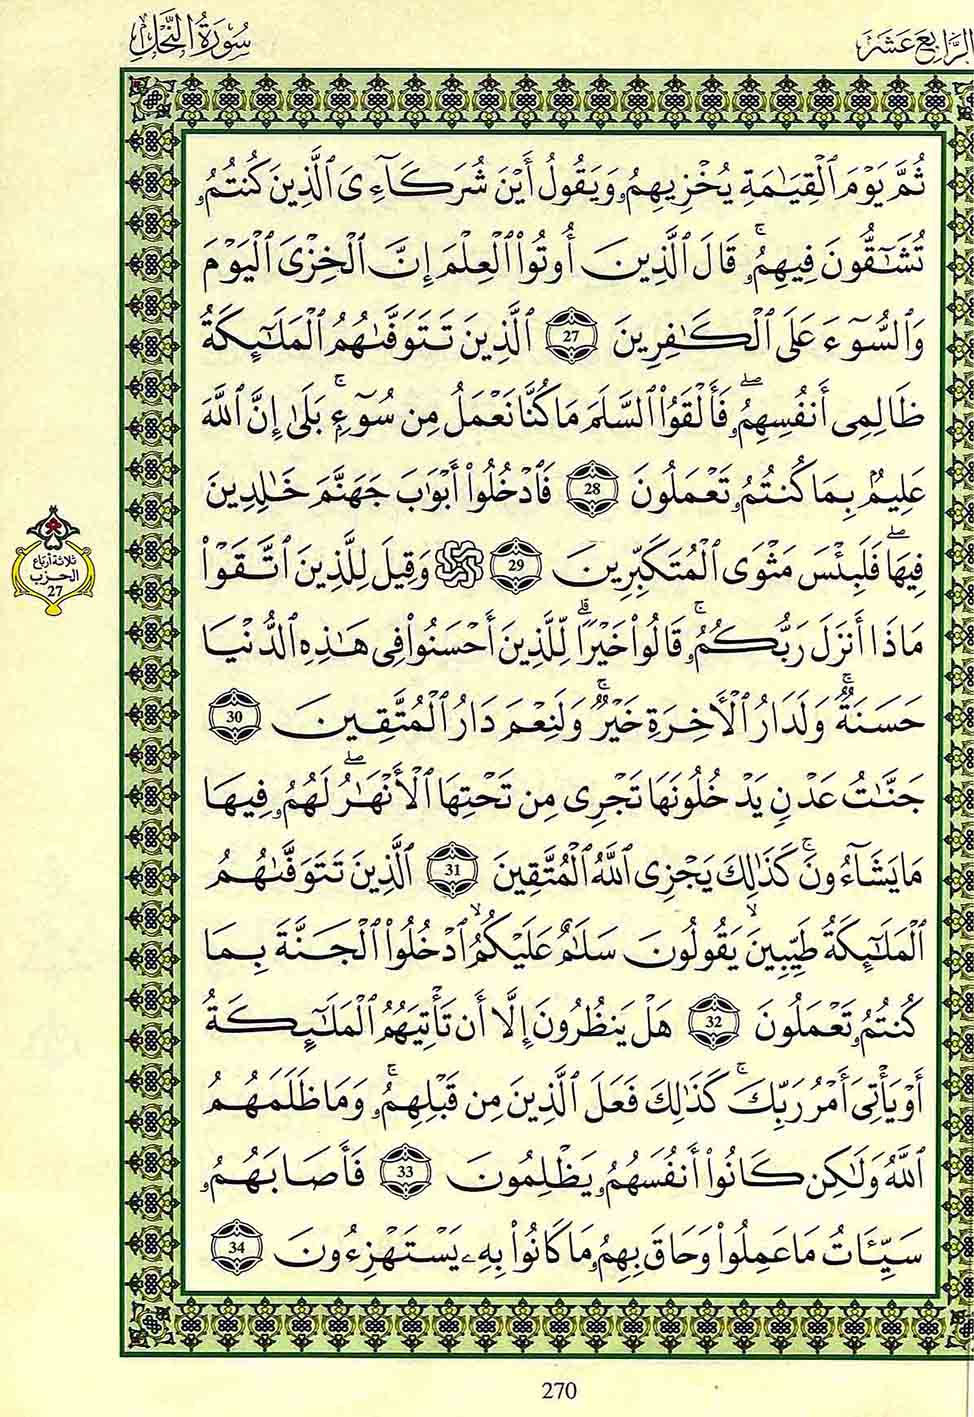 الرَّابِعَ عَشَرَ
سُورَةُ النَّحْلِ
ثُمَّ يَوْمَ ٱلْقِيَٰمَةِ يُخْزِيهِمُۥ وَيَقُولُ أَيْنَ شُرَكَآءِىَ ٱلَّذِينَ كُنتُمُۥ
تُشَٰٓقُّونَ فِيهِمُۥۚ قَالَ ٱلَّذِينَ أُوتُوا۟ ٱلْعِلْمَ إِنَّ ٱلْخِزْىَ ٱلْيَوْمَ
وَٱلسُّوٓءَ عَلَى ٱلْكَٰفِرِينَ 27 ٱلَّذِينَ تَتَوَفَّىٰهُمُ ٱلْمَلَٰٓئِكَةُ
ظَالِمِىٓ أَنفُسِهِمُۥۖ فَأَلْقَوُا۟ ٱلسَّلَمَ مَا كُنَّا نَعْمَلُ مِن سُوٓءٍۭۚ بَلَىٰ إِنَّ ٱللَّهَ
عَلِيمٌۢ بِمَا كُنتُمُۥ تَعْمَلُونَ 28 فَٱدْخُلُوا۟ أَبْوَٰبَ جَهَنَّمَ خَٰلِدِينَ
فِيهَاۖ فَلَبِئْسَ مَثْوَى ٱلْمُتَكَبِّرِينَ 29 وَقِيلَ لِلَّذِينَ ٱتَّقَوْا۟
مَاذَا أَنزَلَ رَبُّكُمُۥۚ قَالُوا۟ خَيْرًاۗ لِّلَّذِينَ أَحْسَنُوا۟ فِى هَٰذِهِ ٱلدُّنْيَا
حَسَنَةٌۚ وَلَدَارُ ٱلْأَخِرَةِ خَيْرٌۚ وَلَنِعْمَ دَارُ ٱلْمُتَّقِينَ 30
جَنَّٰتُ عَدْنٍ يَدْخُلُونَهَا تَجْرِى مِن تَحْتِهَا ٱلْأَنْهَٰرُۖ لَهُمُۥ فِيهَا
مَا يَشَآءُونَۚ كَذَٰلِكَ يَجْزِى ٱللَّهُ ٱلْمُتَّقِينَ 31 ٱلَّذِينَ تَتَوَفَّىٰهُمُ
ٱلْمَلَٰٓئِكَةُ طَيِّبِينَۙ يَقُولُونَ سَلَٰمٌ عَلَيْكُمُۙ ٱدْخُلُوا۟ ٱلْجَنَّةَ بِمَا
كُنتُمُۥ تَعْمَلُونَ 32 هَلْ يَنظُرُونَ إِلَّا أَن تَأْتِيَهُمُ ٱلْمَلَٰٓئِكَةُ
أَوْ يَأْتِىَ أَمْرُ رَبِّكَۚ كَذَٰلِكَ فَعَلَ ٱلَّذِينَ مِن قَبْلِهِمُۥۚ وَمَا ظَلَمَهُمُ
ٱللَّهُ وَلَٰكِن كَانُوا۟ أَنفُسَهُمُۥ يَظْلِمُونَ 33 فَأَصَابَهُمُۥ
سَيِّـَٔاتُ مَا عَمِلُوا۟ وَحَاقَ بِهِمُۥ مَا كَانُوا۟ بِهِۦ يَسْتَهْزِءُونَ 34
ثلاثة أرباع
الحزب
27
270